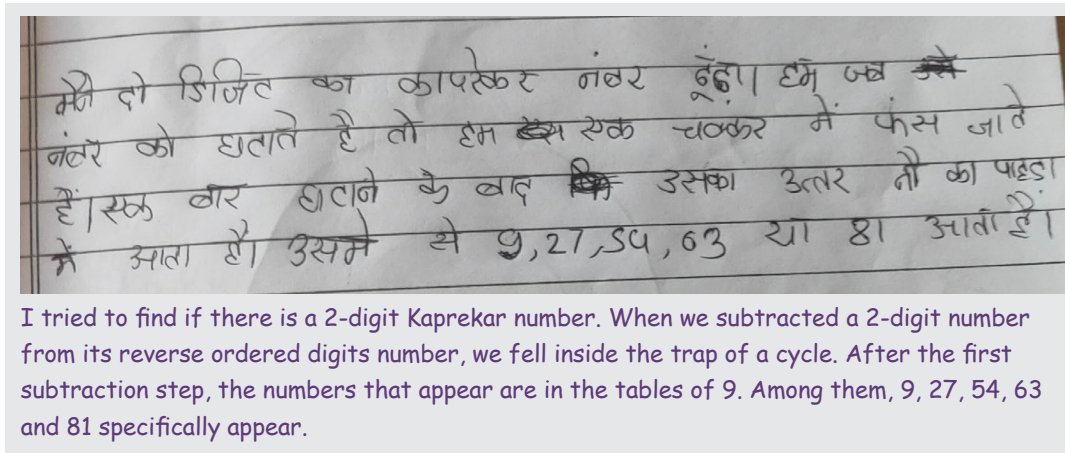 मैने दो डिजिट का कापरेकर नंबर ढूंढा। हम जब
नंबर को घटाते है तो हम एक चक्कर में फंस जाते
हैं। एक बार घटाने के बाद उसका उत्तर नौ का पाहडा
में आता है। उसमे से 9, 27, 54, 63 या 81 आता है।
I tried to find if there is a 2-digit Kaprekar number. When we subtracted a 2-digit number
from its reverse ordered digits number, we fell inside the trap of a cycle. After the first
subtraction step, the numbers that appear are in the tables of 9. Among them, 9, 27, 54, 63
and 81 specifically appear.